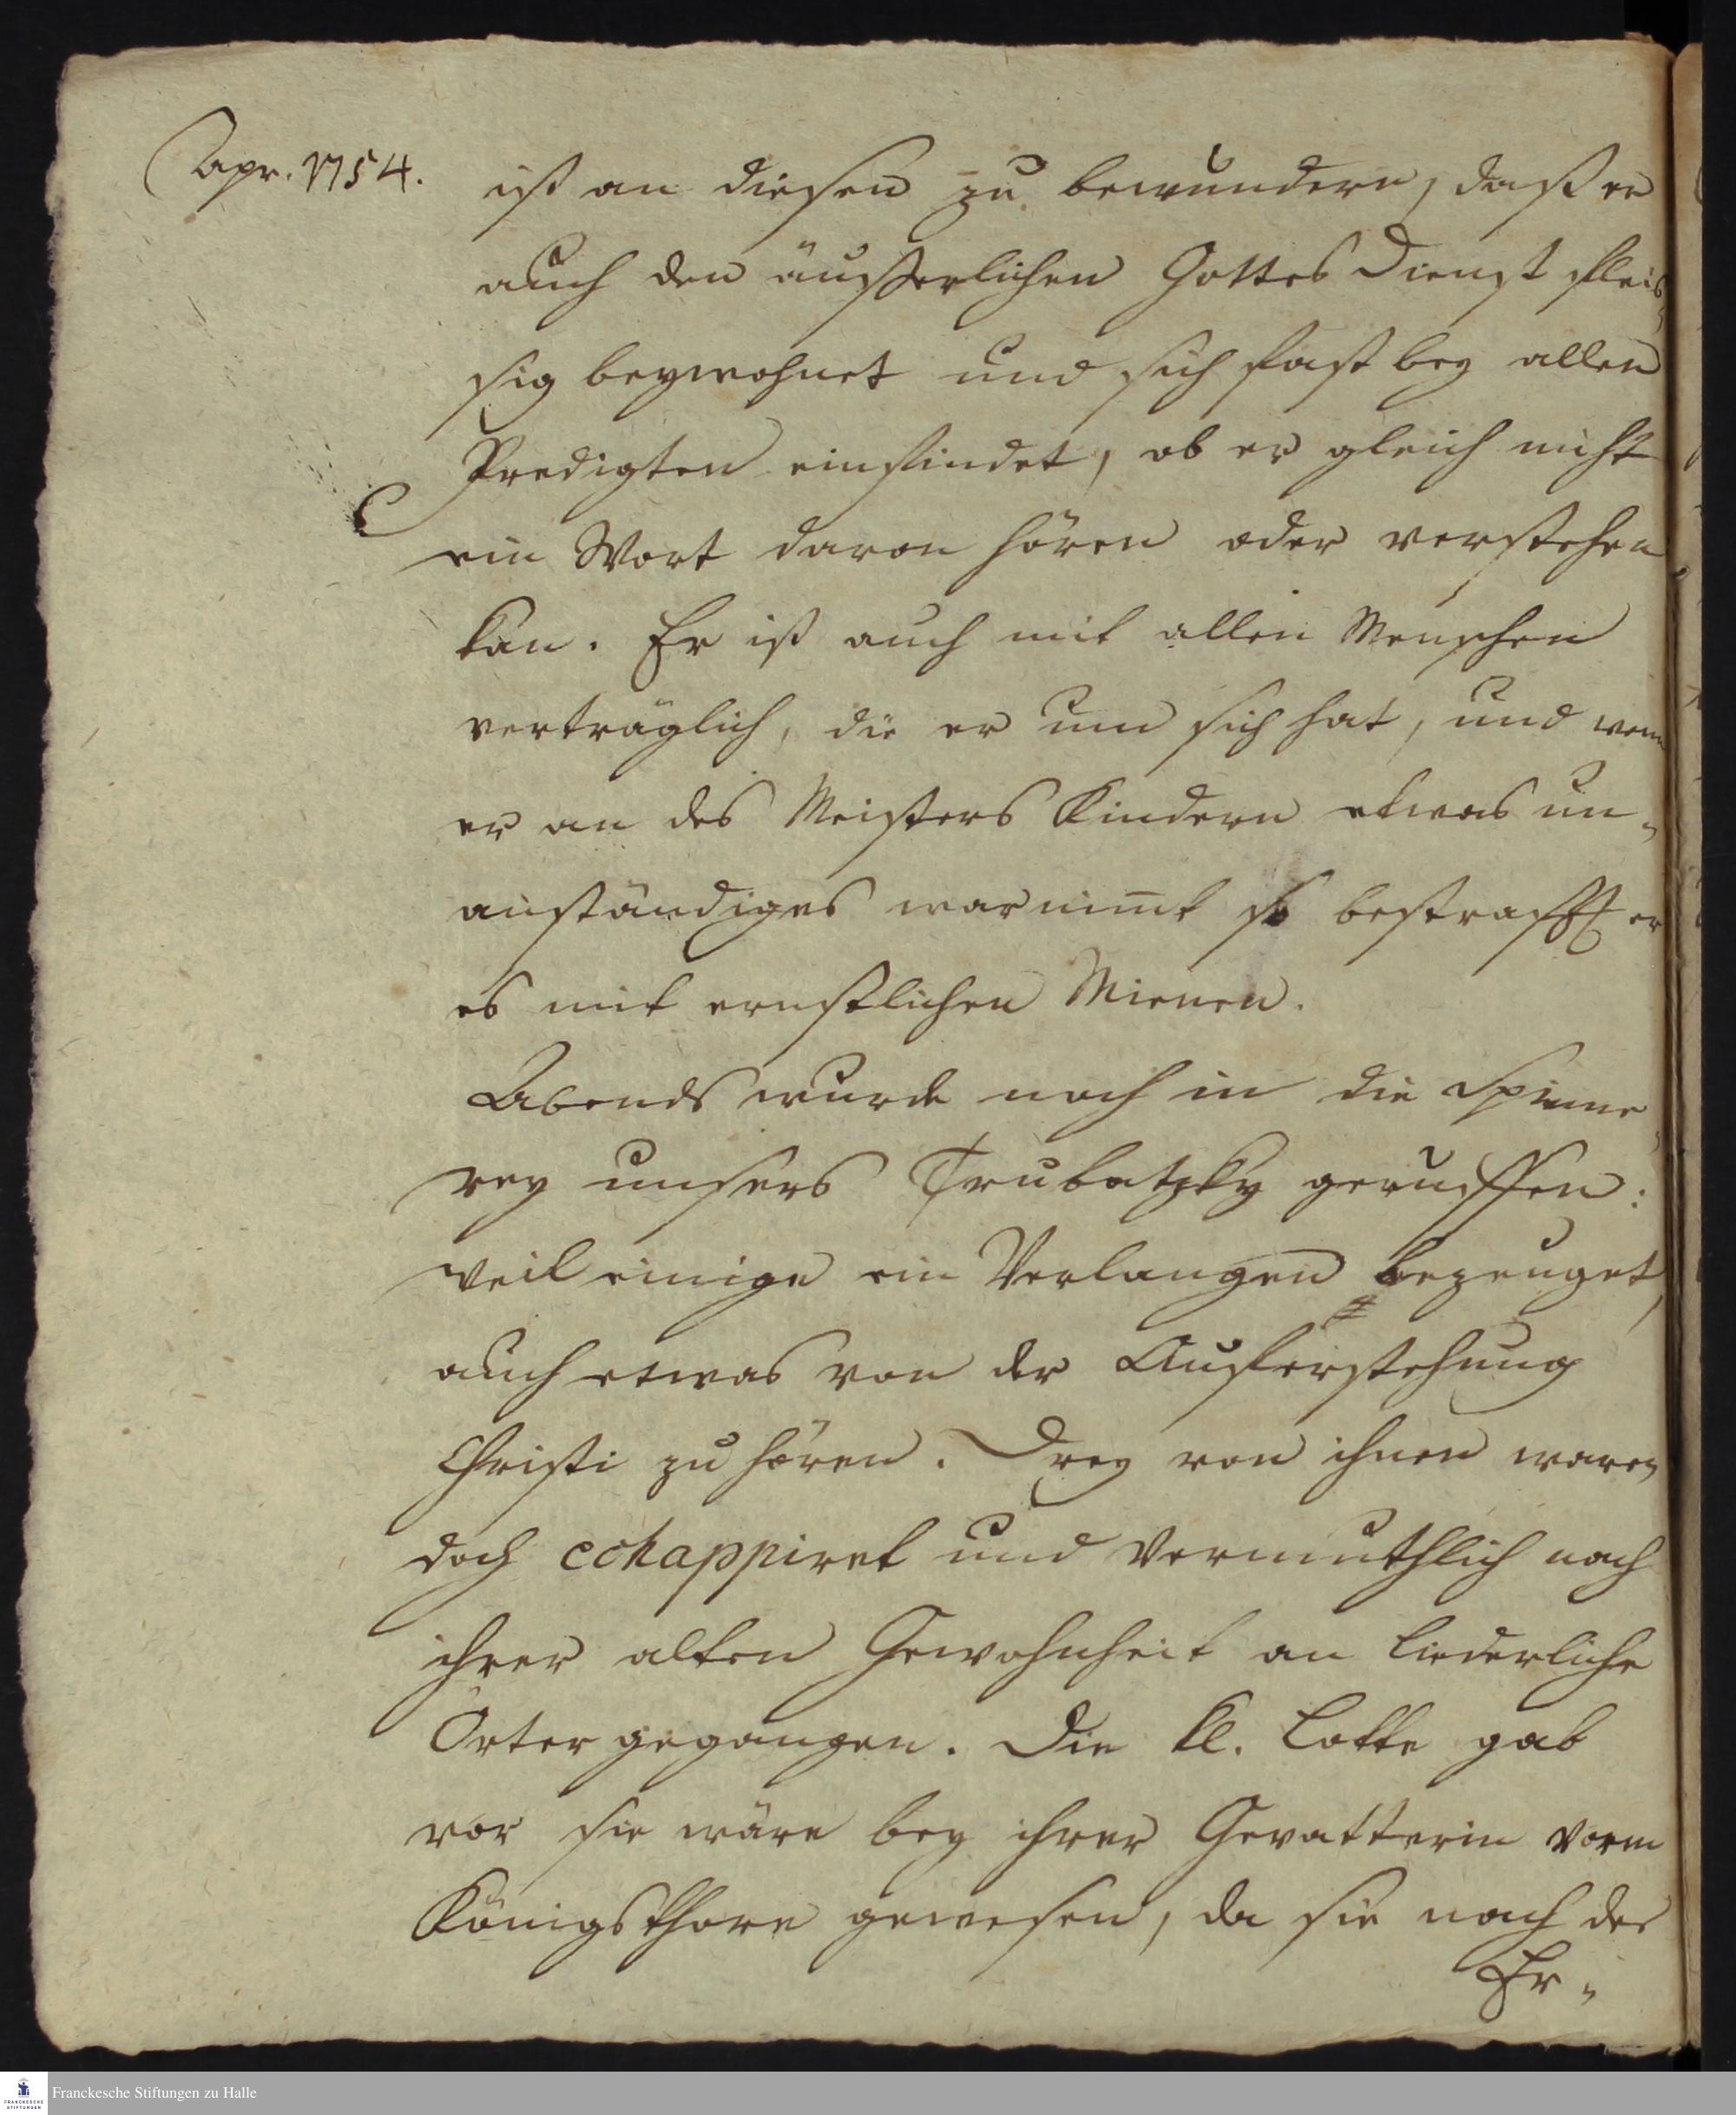 Apr. 1754.
ist an diesen zu bewundern, daß er
auch den äusserlichen Gottes Dienst fleis¬
sig beywohnet und sich fast bey allen
Predigten einfindet, ob er gleich nicht
ein Wort davon hören oder verstehen
kan. Er ist auch mit allen Menschen
verträglich, die er um sich hat, und wenn
er an des Meisters Kindern etwas un¬
anständiges warnim̄t so bestrafft er
es mit ernstlichen Mienen.
Abends wurde noch in die Spinne¬
rey unsers Trubatzky geruffen:
weil einige ein Verlangen bezeuget,
auch etwas von der Auferstehung
Christi zu hören. Drey von ihnen waren
doch echappiret und vermuthlich nach
ihrer alten Gewohnheit an liederliche
Örter gegangen. Die kl. Lotte gab
vor sie wäre bey ihrer Gevatterin vorm
Königsthore gewesen, da sie nach der
Er¬
Franckesche Stiftungen zu Halle
FRANCKESCHE
STIFTUNGEN